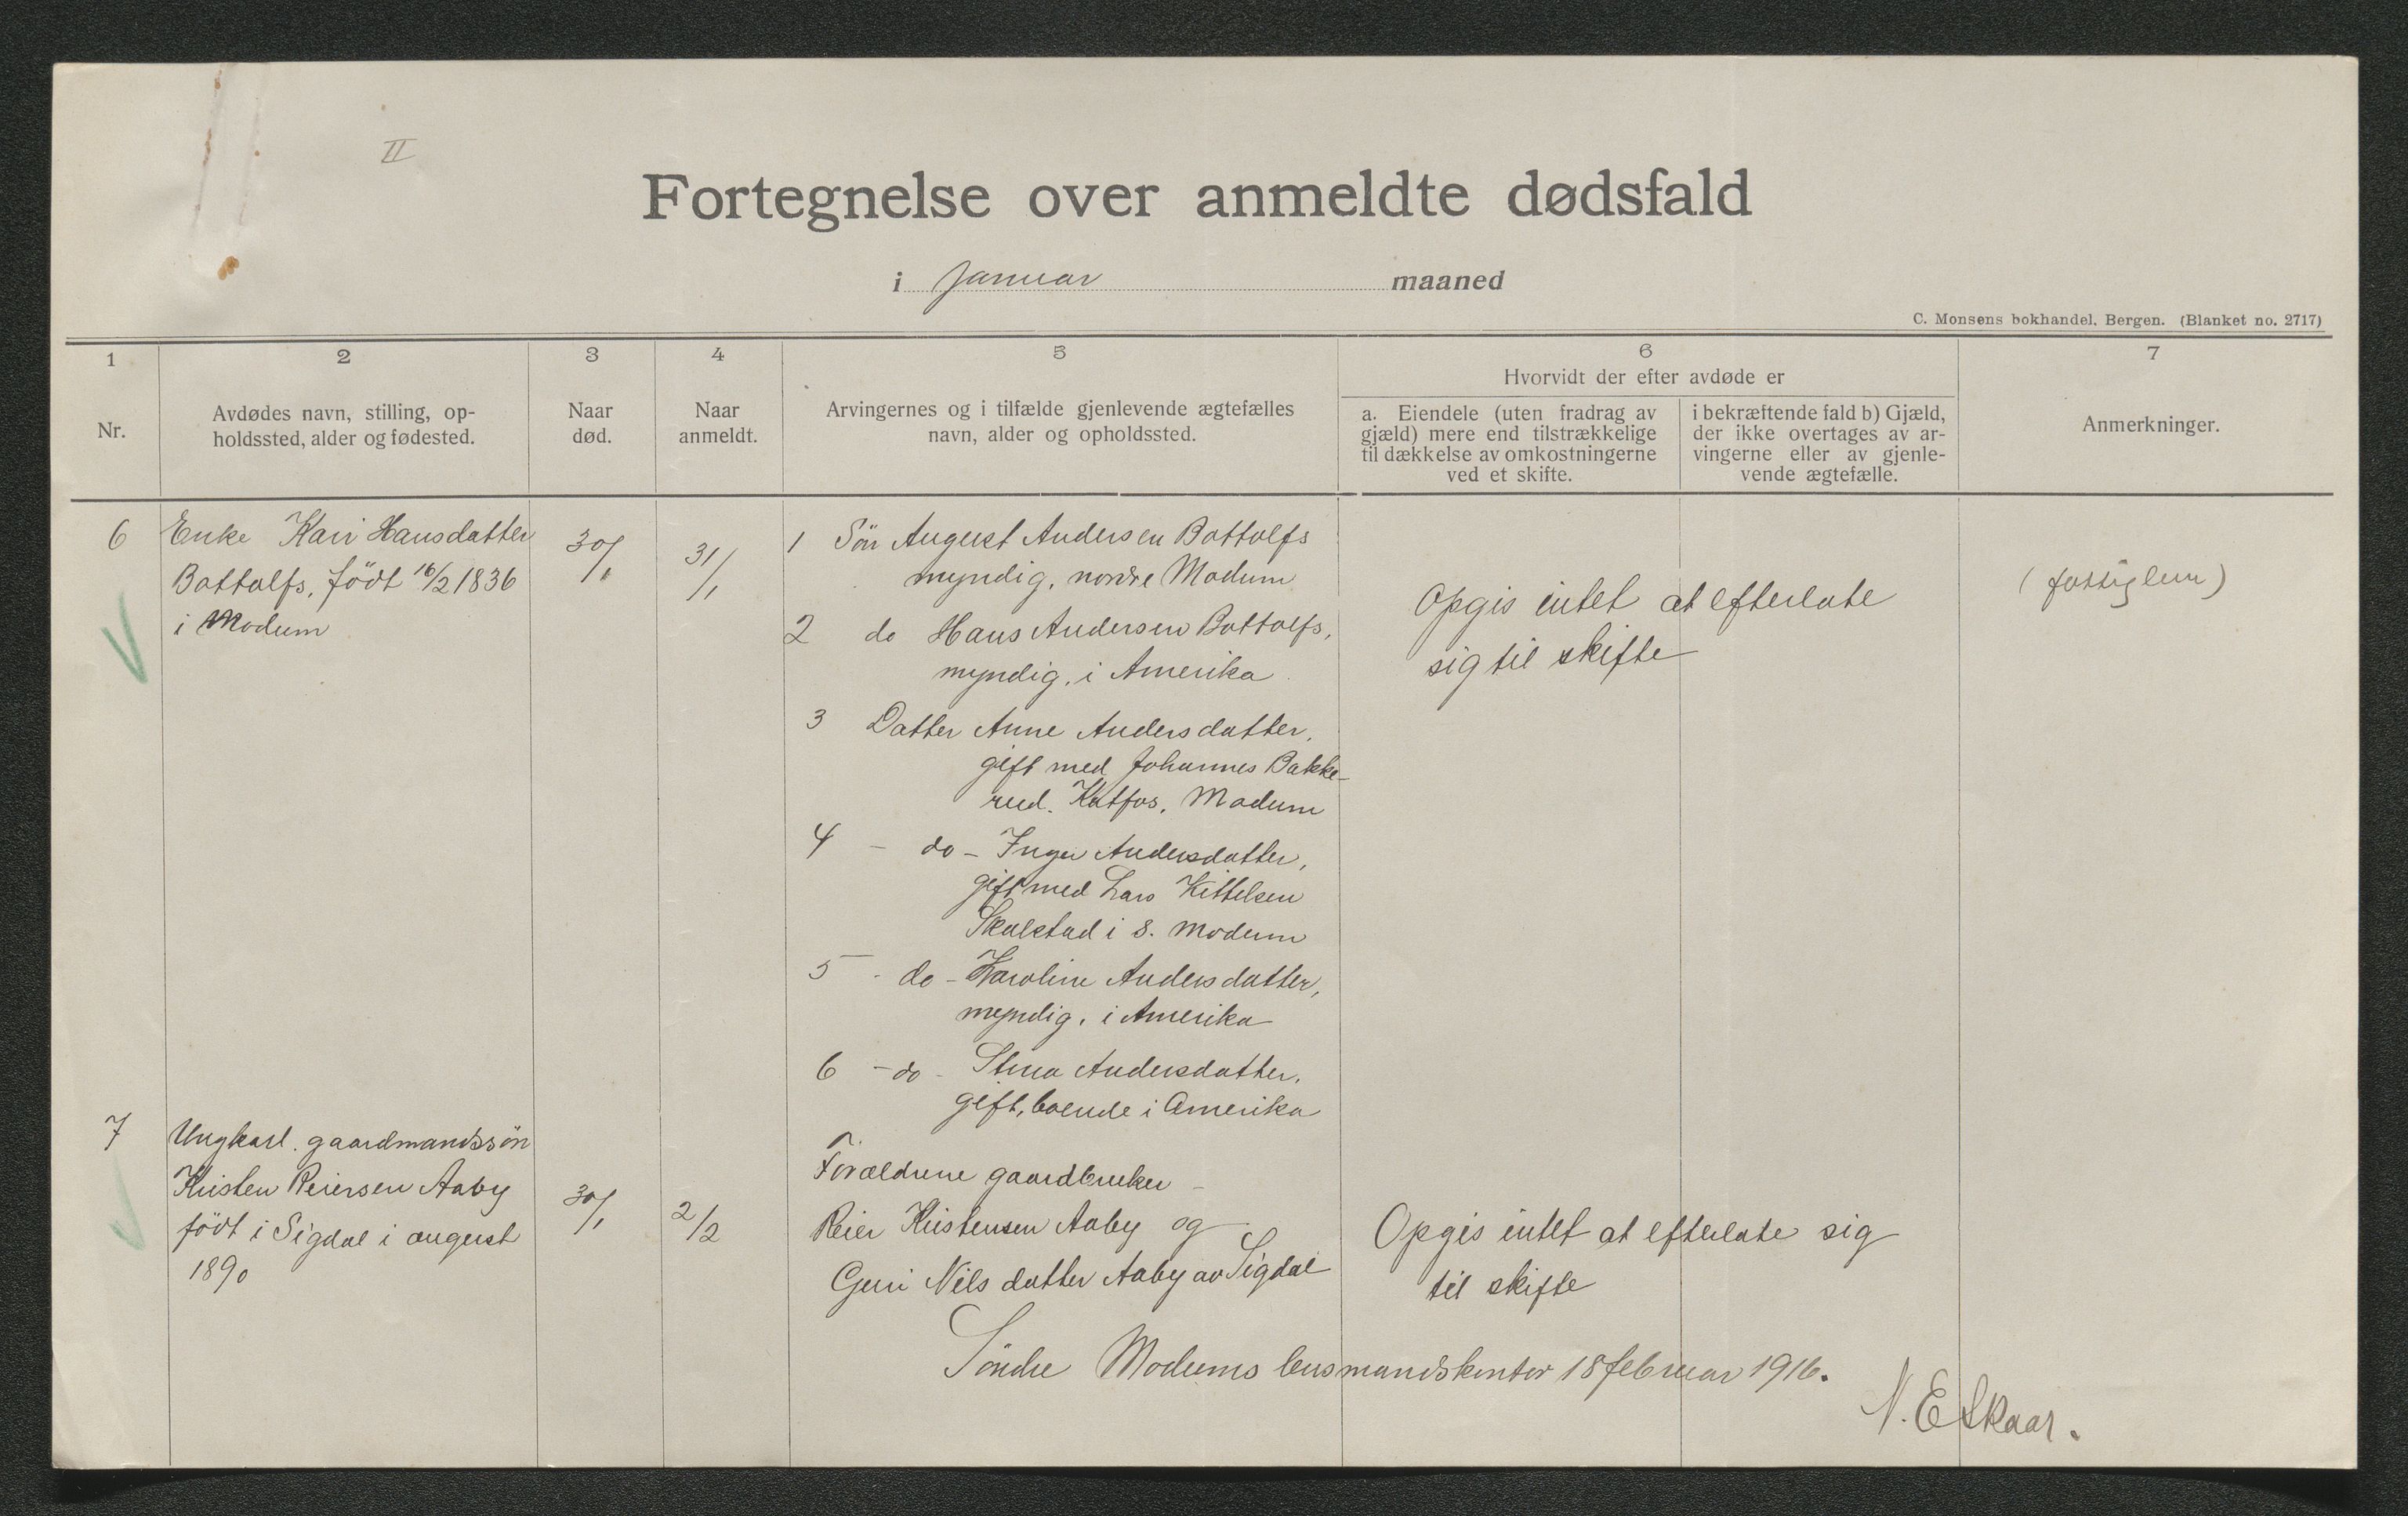 II
Fortegnelse over anmeldte dødsfald
i Januar maaned
C. Monsens bokhandel, Bergen. (Blanket no. 2717)
1
2
3
4
5
6
7
Nr.
Avdødes navn, stilling, op-
holdssted, alder og fødested.
Naar
død.
Naar
anmeldt.
Arvingernes og i tilfælde gjenlevende ægtefælles
navn, alder og opholdssted.
Hvorvidt der efter avdøde er
a. Eiendele (uten fradrag av
gjæld) mere end tilstrækkelige
til dækkelse av omkostningerne
ved et skifte.
i bekræftende fald b) Gjæld,
der ikke overtages av ar-
vingerne eller av gjenle-
vende ægtefælle.
Anmerkninger.
6
Enke Kari Hansdatter
Bottolfs, født 16/2 1836
i Modum
30/1
31/1
1 Søn August Andersen Bottolfs
myndig, nordre Modum
2 do Hans Andersen Bottolfs,
myndig, i Amerika
3 Datter Anne Andersdatter,
gift med Johannes Bakke-
rud. Katfos, Modum
4 - do - Inger Andersdatter,
gift med Lars Kittelsen
Skalstad i S. Modum
5 - do - Karoline Andersdatter,
myndig, i Amerika
6 - do - Stina Andersdatter,
gift, boende i Amerika
Opgis intet at efterlate
sig til skifte
(fattiglem)
7
Ungkarl. gaardmandssøn
Kristen Reiersen Aaby
født i Sigdal i august
1890
30/1
2/2
Forældrene gaardbruker
Reier Kristensen Aaby og
Guri Nilsdatter Aaby av Sigdal
Opgis intet at efterlate sig
til skifte
Søndre Modums lensmandskontor 18 februar 1916.
N. E Skaar.